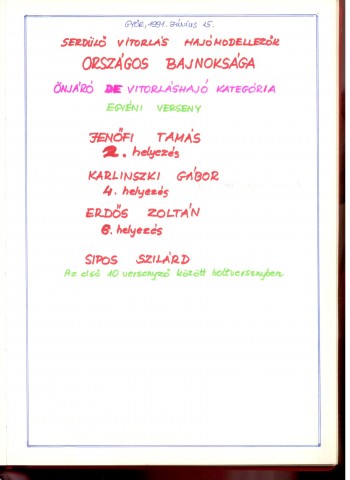 GYŐR, 1991. JÚNIUS 15.
SERDÜLŐ VITORLÁS HAJÓMODELLEZŐK
ORSZÁGOS BAJNOKSÁGA
ÖNJÁRÓ DE VITORLÁSHAJÓ KATEGÓRIA
EGYÉNI VERSENY
JENŐFI TAMÁS
2. helyezés
KARLINSZKI GÁBOR
4. helyezés
ERDŐS ZOLTÁN
6. helyezés
SIPOS SZILÁRD
Az első 10 versenyző között holtversenyben